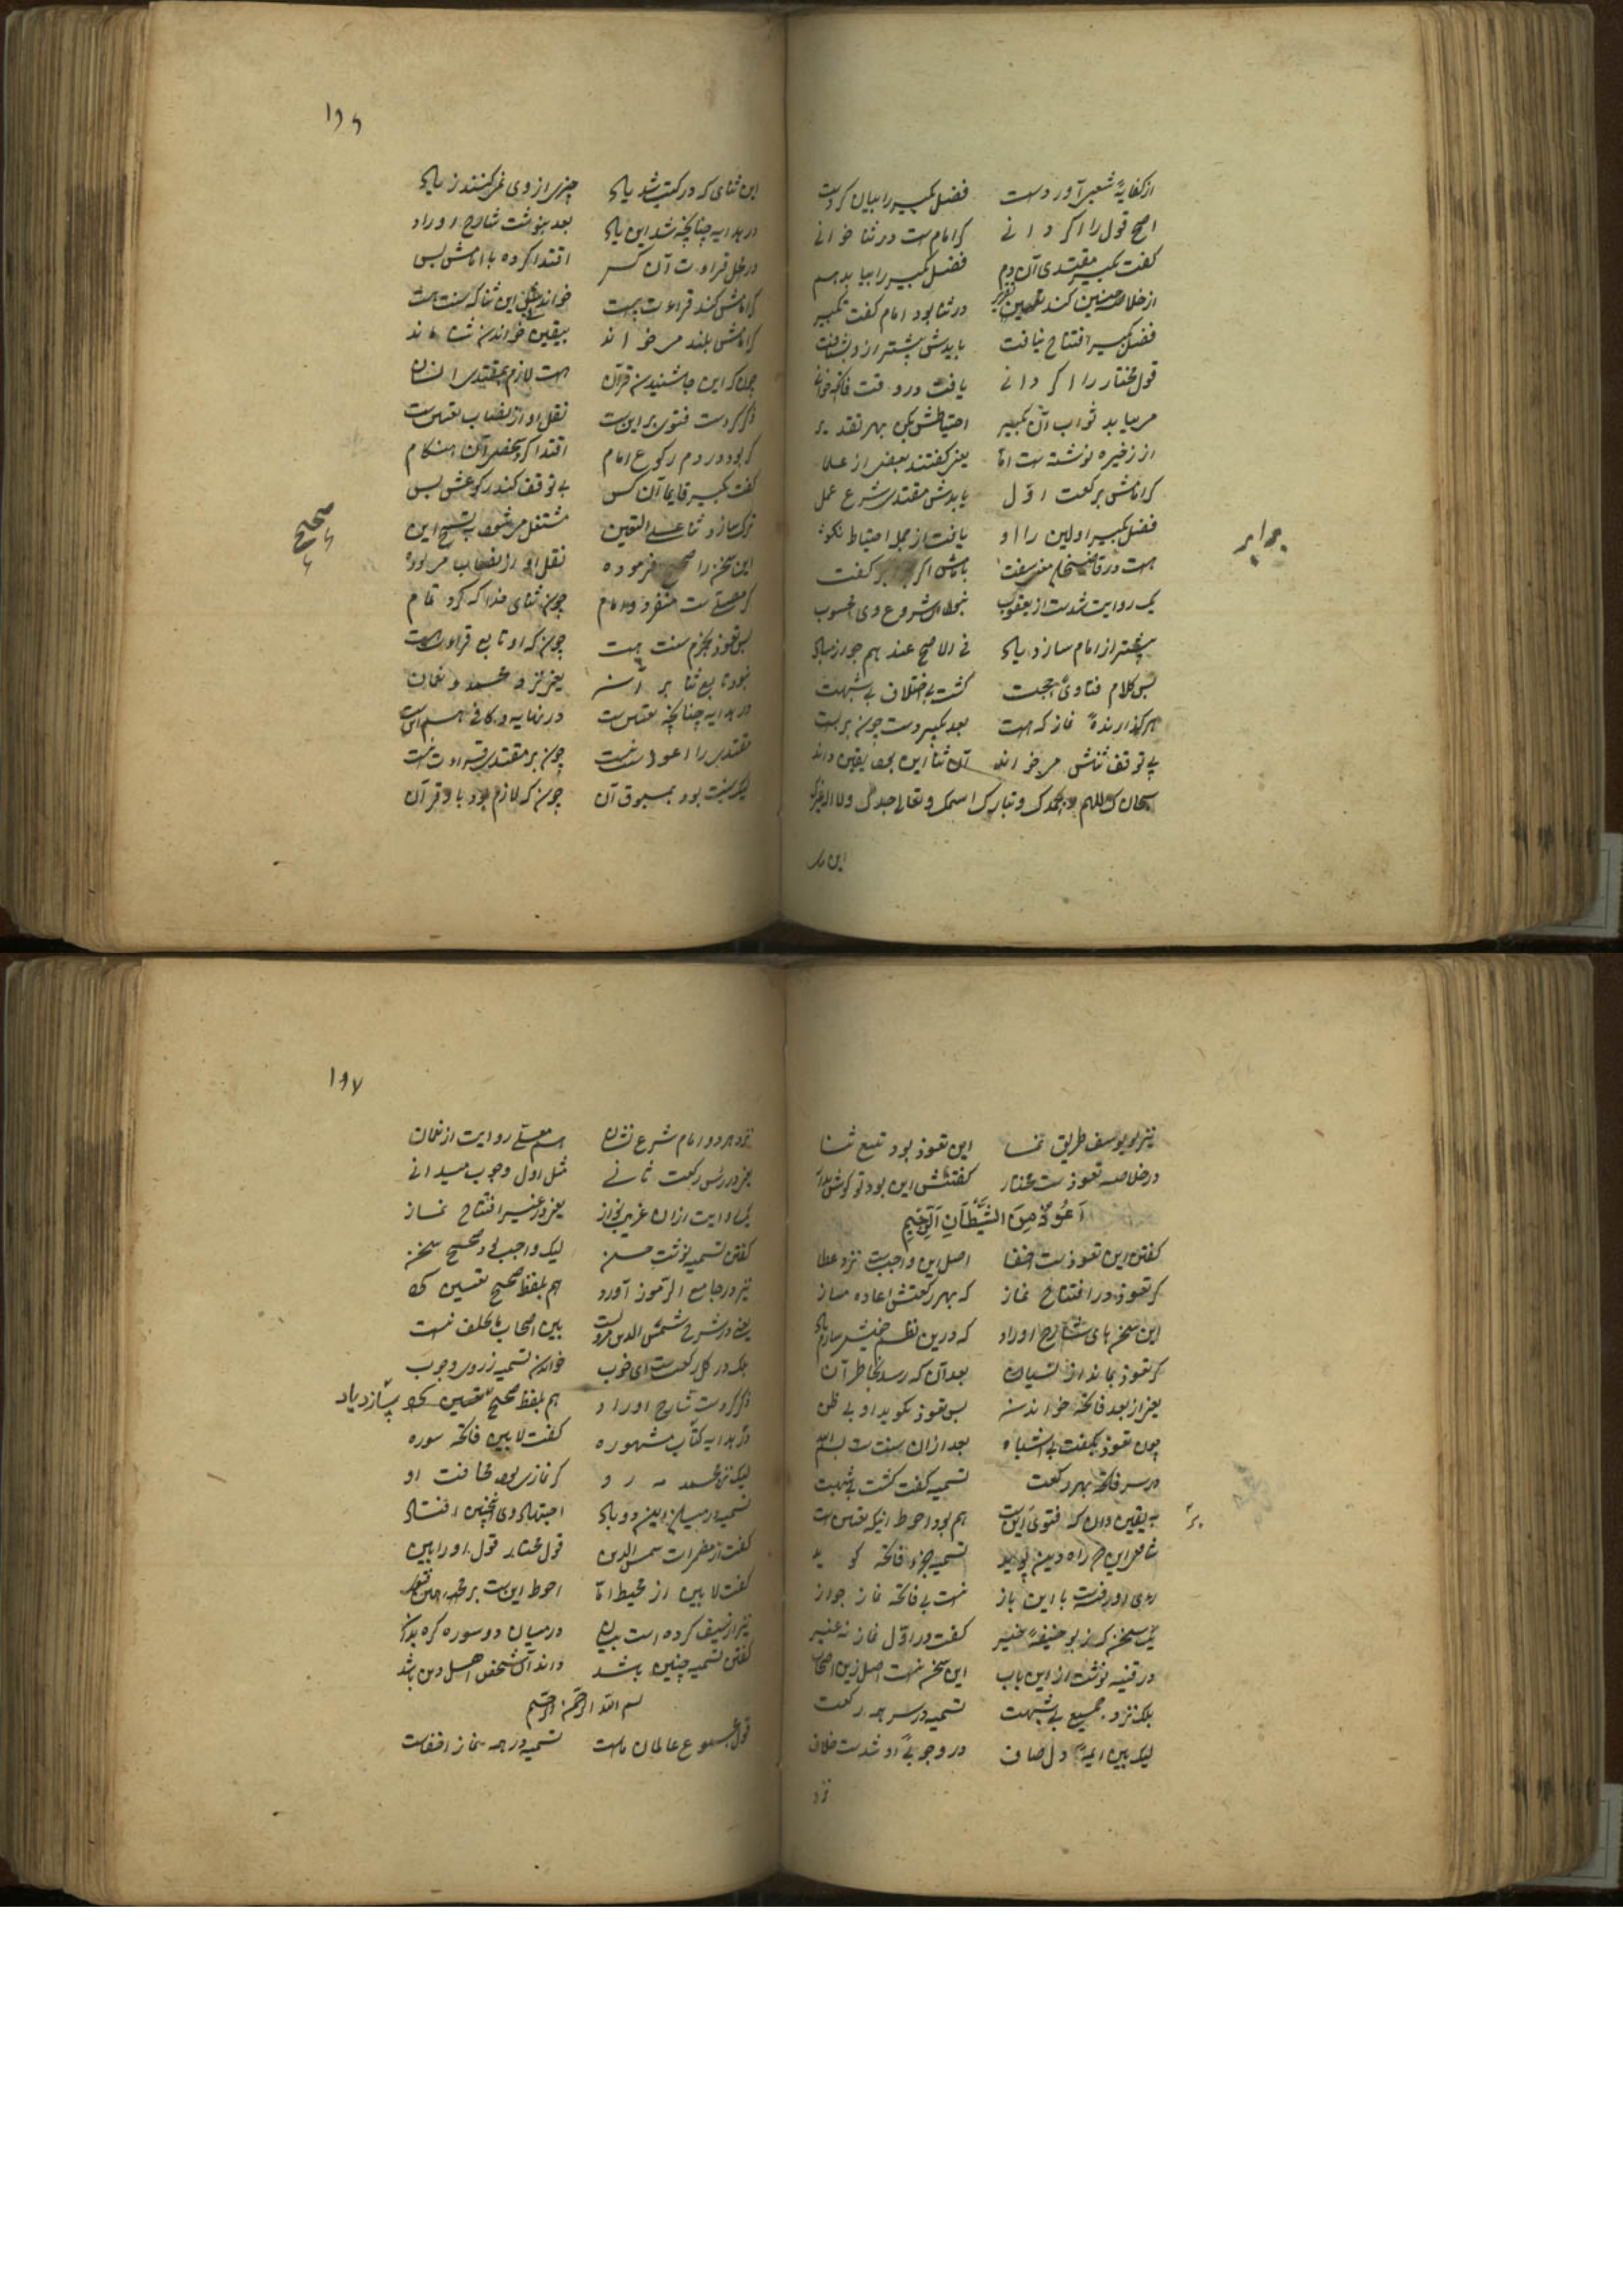 از کفایهٔ شعبی آوردست فضل تکبیر را بیان کردست
اصح قول را اگر دانی که امام ست در ثنا خوانی
گفت تکبیر مقتدی آن دم فضل تکبیر را بیابد هم
از خلاصه چنین کند تقریر در ثنا بود امام گفت تکبیر
فضل تکبیر افتتاح نیافت بایدش پیشتر از و بشتافت
قول مختار را اگر دانی یافت در وقت فاتحه خوانی
می بیابد ثواب آن تکبیر احتیاطش بکن بهر تقدیر
از ذخیره نوشته ست اما یعنی گفتند بعضی از علما
که امامش برکعت اول یابدش مقتدی شرع عمل
فضل تکبیر اولین را او یافت از بهر احتیاط نکو
هست در قاضیخان بامامش اگر برابر گفت
یک روایت شدست از یعقوب نبود این شروع وی محسوب
پیشتر از امام سازد یاد فی الاصح عند هم جواز مباد
پس کلام فتاوی حجت گشت بی اختلاف بی شبهت
هر گذارندهٔ نماز که هست بعد تکبیر دست چون بر بست
بی توقف ثنش می خواند آن ثنا این بحق یقین داند
سبحانک اللهم و بحمدک و تبارک اسمک و تعالی جدک ولا اله غیرک
برابر
۱۹۶
این ثنای که در کتب شد یاد چیزی از وی نمی کنند زیاد
در هدایه چنانچه شد این یاد بعد بنوشت شارح اوراد
در محل قراءت آن کس اقتدا کرده با امامش پس
که امامش کند قراءت پست خواندش این ثنا که سنت هست
که امامش بلند می خواند بیقین خواندن ثنا ماند
چونکه این جا شنیدن قرآن هست لازم بمقتدی انسان
ذکر کردست فتوی بر این ست نقل او از نصاب تعیین ست
که بود در دم رکوع امام اقتدا کرد شخصی آن هنگام
گفت تکبیر قایما آن کس بی توقف کند رکوعش پس
ترک سازد ثنا علی التعیین مشتغل می شود بتسبیح این
این سخن را صحیح فرموده نقل او از نصاب می بوده
که مصلی ست منفرد و امام چون ثنای خدا که کرد تمام
پس تعوذ بجزم سنت هست چون که او تابع قراءت است
نبود تابع ثنا یعنی نزد محمد و نعمان
در هدایه چنانچه تعیین ست در نهایه و کافی هم این ست
مقتدی را اعوذ سنت نیست چون بر مقتدی قراءت نیست
لیک سنت بود بمسبوق آن چون که لازم بود با و قرآن
صحیح
نیز بو یوسف طریق نما این تعوذ بود تبع ثنا
در خلاصه تعوذ ست مختار گفتنش این بود تو گوش بدار
اَعُوذُ مِنَ الشَّیْطَانِ الرَّجِیمِ
گفتن این تعوذ ست اخفا اصل این واجب ست نزد عطا
گر تعوذ در افتتاح نماز که بهر رکعتش اعاده مساز
این سخن های شارح اوراد که درین نظم
گر تعوذ بماند از نسیان بعد آن که رسد بخاطر آن
یعنی از بعد فاتحه خواندن پس تعوذ نگوید او بی ظن
چون تعوذ بگفت بی اشتباه بعد ازان سنت ست بسم الله
در سر فاتحه بهر رکعت تسمیه گفت گشت بی شبهت
بیقین دان که فتوی این ست هم بود احوط اینکه تعیین ست
شافعی این راه دین پوید تسمیه جزء فاتحه گوید
روی او رفتست با این باز نیست بی فاتحه نماز جواز
یک سخن که ز بو حنیفه خبیر گفت در اول نماز نه غیر
در قنیه نوشت از این باب این سخن نیست اصل زین اصحاب
بلک نزد جمیع بی شبهت تسمیه در سر همه رکعت
لیک بین ایمهٔ دل صاف در وجوب او شدست خلاف
نزد
۱۹۷
نزد هر دو امام شرع نشان هم معلی روایت از نعمان
یعنی در رکعت ثانی مثل اول وجوب میدانی
یک روایت ازان عزیز یعنی در غیر افتتاح نماز
گفتن تسمیه نوشت حسن لیک واجب صحیح سخن
نیز در جامع الرموز آورد هم بلفظ صحیح تعیین کرد
یعنی در شرح شمس الدین بین اصحاب ما خلف نیست
بلک در کل رکعت ای خوب خواندن تسمیه ز روی وجوب
ذکر کردست شارح اوراد هم بلفظ صحیح تعیین
در هدایه کتاب مشهوره گفت لا بین فاتحه سوره
لیک نزد محمد گر نمازی بود مخافت او
تسمیه در میان این دو یاد اجتهاد وی اینچنین افتاد
گفت از مضمرات شمس الدین قول مختار قول او را بین
گفت لا بین از محیط اما احوط این ست
در میان دو سوره کرد بیان
گفتن تسمیه چنین باشد داند آن شخص اهل دین باشد
بسم الله الرحمن الرحیم
قول مجموع عالمان ماست تسمیه در همه نماز اخفاست